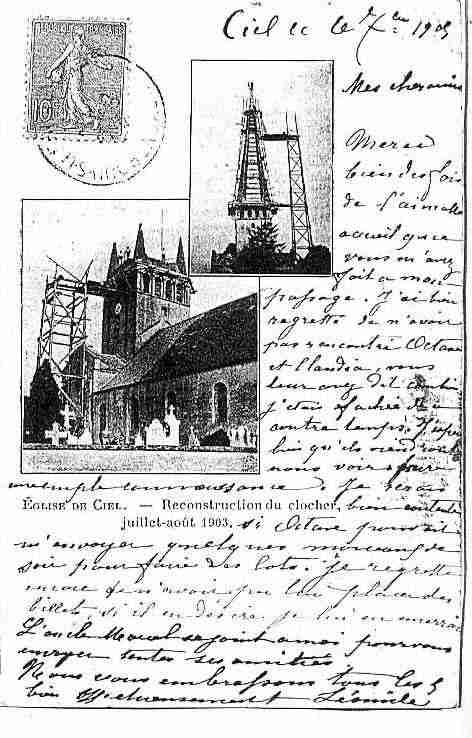 Ciel ce le 7 1905
Mes chers amis
Merci
bien des fois
de l'aimable
accueil que
vous m'avez
fait a mon
passage. J'ai bien
regretté de n'avoir
pas rencontré Octave
et Claudia, vous
leur avez dit combien
j'étais fachée de ce
contre temps. J'espère
bien qu'ils viendront
nous voir pour
connaissance. Je serais
ÉGLISE DE CIEL. — Reconstruction du clocher,
juillet-août 1903.
bien contente
si Octave pouvait
m'envoyer quelques morceaux de
soie pour faire des lots. Je regrette
encore de n'avoir pu lui placer des
billets si il en désire je lui en enverrai
L'oncle se joint a moi pour vous
envoyer toutes ses amitiés
Nous vous embrassons tous les 5
bien affectueusement Léonile